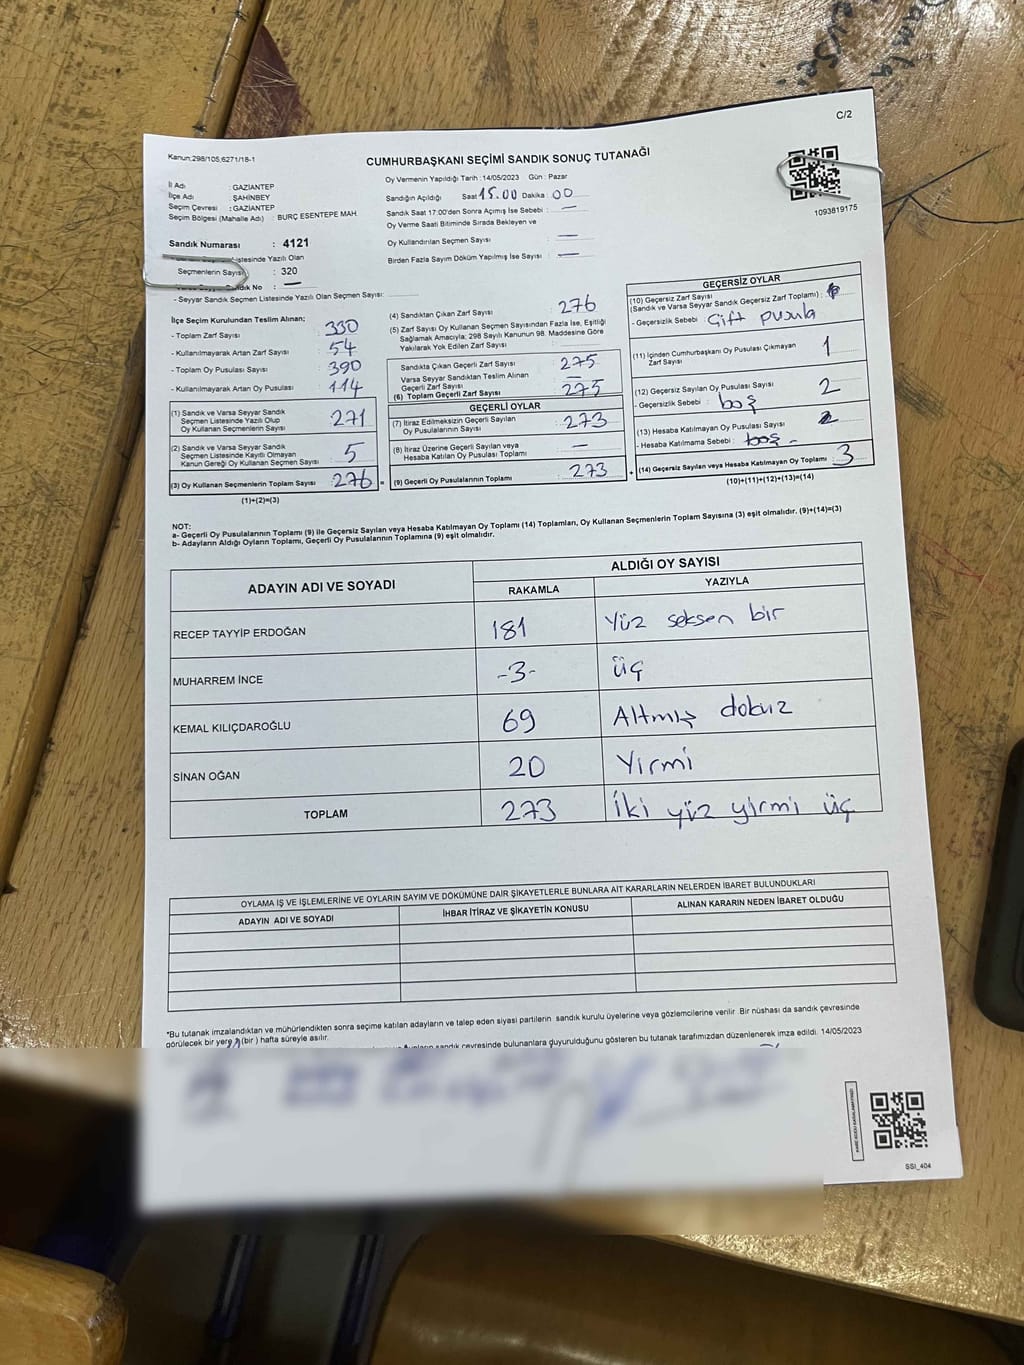 C/2
Kanun:298/105;6271/18-1
CUMHURBAŞKANI SEÇİMİ SANDIK SONUÇ TUTANAĞI
Oy Vermenin Yapıldığı Tarih :14/05/2023 Gün : Pazar
İl Adı : GAZİANTEP
İlçe Adı : ŞAHİNBEY
Seçim Çevresi : GAZİANTEP
Seçim Bölgesi (Mahalle Adı) : BURÇ ESENTEPE MAH.
Sandığın Açıldığı Saat 15.00 Dakika : 00
Sandık Saat 17.00'den Sonra Açımış İse Sebebi : —
Oy Verme Saati Bitiminde Sırada Bekleyen ve
Oy Kullandırılan Seçmen Sayısı : —
Birden Fazla Sayım Döküm Yapılmış İse Sayısı : —
1093819175
Sandık Numarası : 4121
Listesinde Yazılı Olan
Seçmenlerin Sayısı : 320
Sandık No : —
- Seyyar Sandık Seçmen Listesinde Yazılı Olan Seçmen Sayısı:
İlçe Seçim Kurulundan Teslim Alınan;
- Toplam Zarf Sayısı : 330
- Kullanılmayarak Artan Zarf Sayısı : 54
- Toplam Oy Pusulası Sayısı : 390
- Kullanılmayarak Artan Oy Pusulası : 114
(1) Sandık ve Varsa Seyyar Sandık
Seçmen Listesinde Yazılı Olup
Oy Kullanan Seçmenlerin Sayısı : 271
(2) Sandık ve Varsa Seyyar Sandık
Seçmen Listesinde Kayıtlı Olmayan
Kanun Gereği Oy Kullanan Seçmen Sayısı : 5
(3) Oy Kullanan Seçmenlerin Toplam Sayısı : 276 =
(1)+(2)=(3)
(4) Sandıktan Çıkan Zarf Sayısı : 276
(5) Zarf Sayısı Oy Kullanan Seçmen Sayısından Fazla İse, Eşitliği
Sağlamak Amacıyla; 298 Sayılı Kanunun 98. Maddesine Göre
Yakılarak Yok Edilen Zarf Sayısı :
Sandıkta Çıkan Geçerli Zarf Sayısı : 275
Varsa Seyyar Sandıktan Teslim Alınan
Geçerli Zarf Sayısı : —
(6) Toplam Geçerli Zarf Sayısı : 275
GEÇERLİ OYLAR
(7) İtiraz Edilmeksizin Geçerli Sayılan
Oy Pusulalarının Sayısı : 273
(8) İtiraz Üzerine Geçerli Sayılan veya
Hesaba Katılan Oy Pusulası Toplamı : —
(9) Geçerli Oy Pusulalarının Toplamı : 273 +
GEÇERSİZ OYLAR
(10) Geçersiz Zarf Sayısı
(Sandık ve Varsa Seyyar Sandık Geçersiz Zarf Toplamı) :
- Geçersizlik Sebebi : Çift pusula
(11) İçinden Cumhurbaşkanı Oy Pusulası Çıkmayan
Zarf Sayısı : 1
(12) Geçersiz Sayılan Oy Pusulası Sayısı : 2
- Geçersizlik Sebebi : boş
(13) Hesaba Katılmayan Oy Pusulası Sayısı :
- Hesaba Katılmama Sebebi : boş -
(14) Geçersiz Sayılan veya Hesaba Katılmayan Oy Toplamı : 3
(10)+(11)+(12)+(13)=(14)
NOT:
a- Geçerli Oy Pusulalarının Toplamı (9) ile Geçersiz Sayılan veya Hesaba Katılmayan Oy Toplamı (14) Toplamları, Oy Kullanan Seçmenlerin Toplam Sayısına (3) eşit olmalıdır. (9)+(14)=(3)
b- Adayların Aldığı Oyların Toplamı, Geçerli Oy Pusulalarının Toplamına (9) eşit olmalıdır.
ADAYIN ADI VE SOYADI ALDIĞI OY SAYISI
RAKAMLA YAZIYLA
RECEP TAYYİP ERDOĞAN 181 Yüz seksen bir
MUHARREM İNCE -3- üç
KEMAL KILIÇDAROĞLU 69 Altmış dokuz
SİNAN OĞAN 20 Yirmi
TOPLAM 273 İki yüz yirmi üç
OYLAMA İŞ VE İŞLEMLERİNE VE OYLARIN SAYIM VE DÖKÜMÜNE DAİR ŞİKAYETLERLE BUNLARA AİT KARARLARIN NELERDEN İBARET BULUNDUKLARI
ADAYIN ADI VE SOYADI İHBAR İTİRAZ VE ŞİKAYETİN KONUSU ALINAN KARARIN NEDEN İBARET OLDUĞU
*Bu tutanak imzalandıktan ve mühürlendikten sonra seçime katılan adayların ve talep eden siyasi partilerin sandık kurulu üyelerine veya gözlemcilerine verilir. Bir nüshası da sandık çevresinde
görülecek bir yere (bir) hafta süreyle asılır.
sandık çevresinde bulunanlara duyurulduğunu gösteren bu tutanak tarafımızdan düzenlenerek imza edildi. 14/05/2023
SSI_404